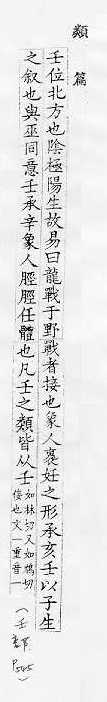 類篇
壬位北方也陰極陽生故易曰龍戰于野戰者接也象人褢妊之形承亥壬以子生
之叙也與巫同意壬承辛象人脛脛任體也凡壬之類皆从壬
如林切又如鴆切
佞也文一重音一
(壬部
P545)